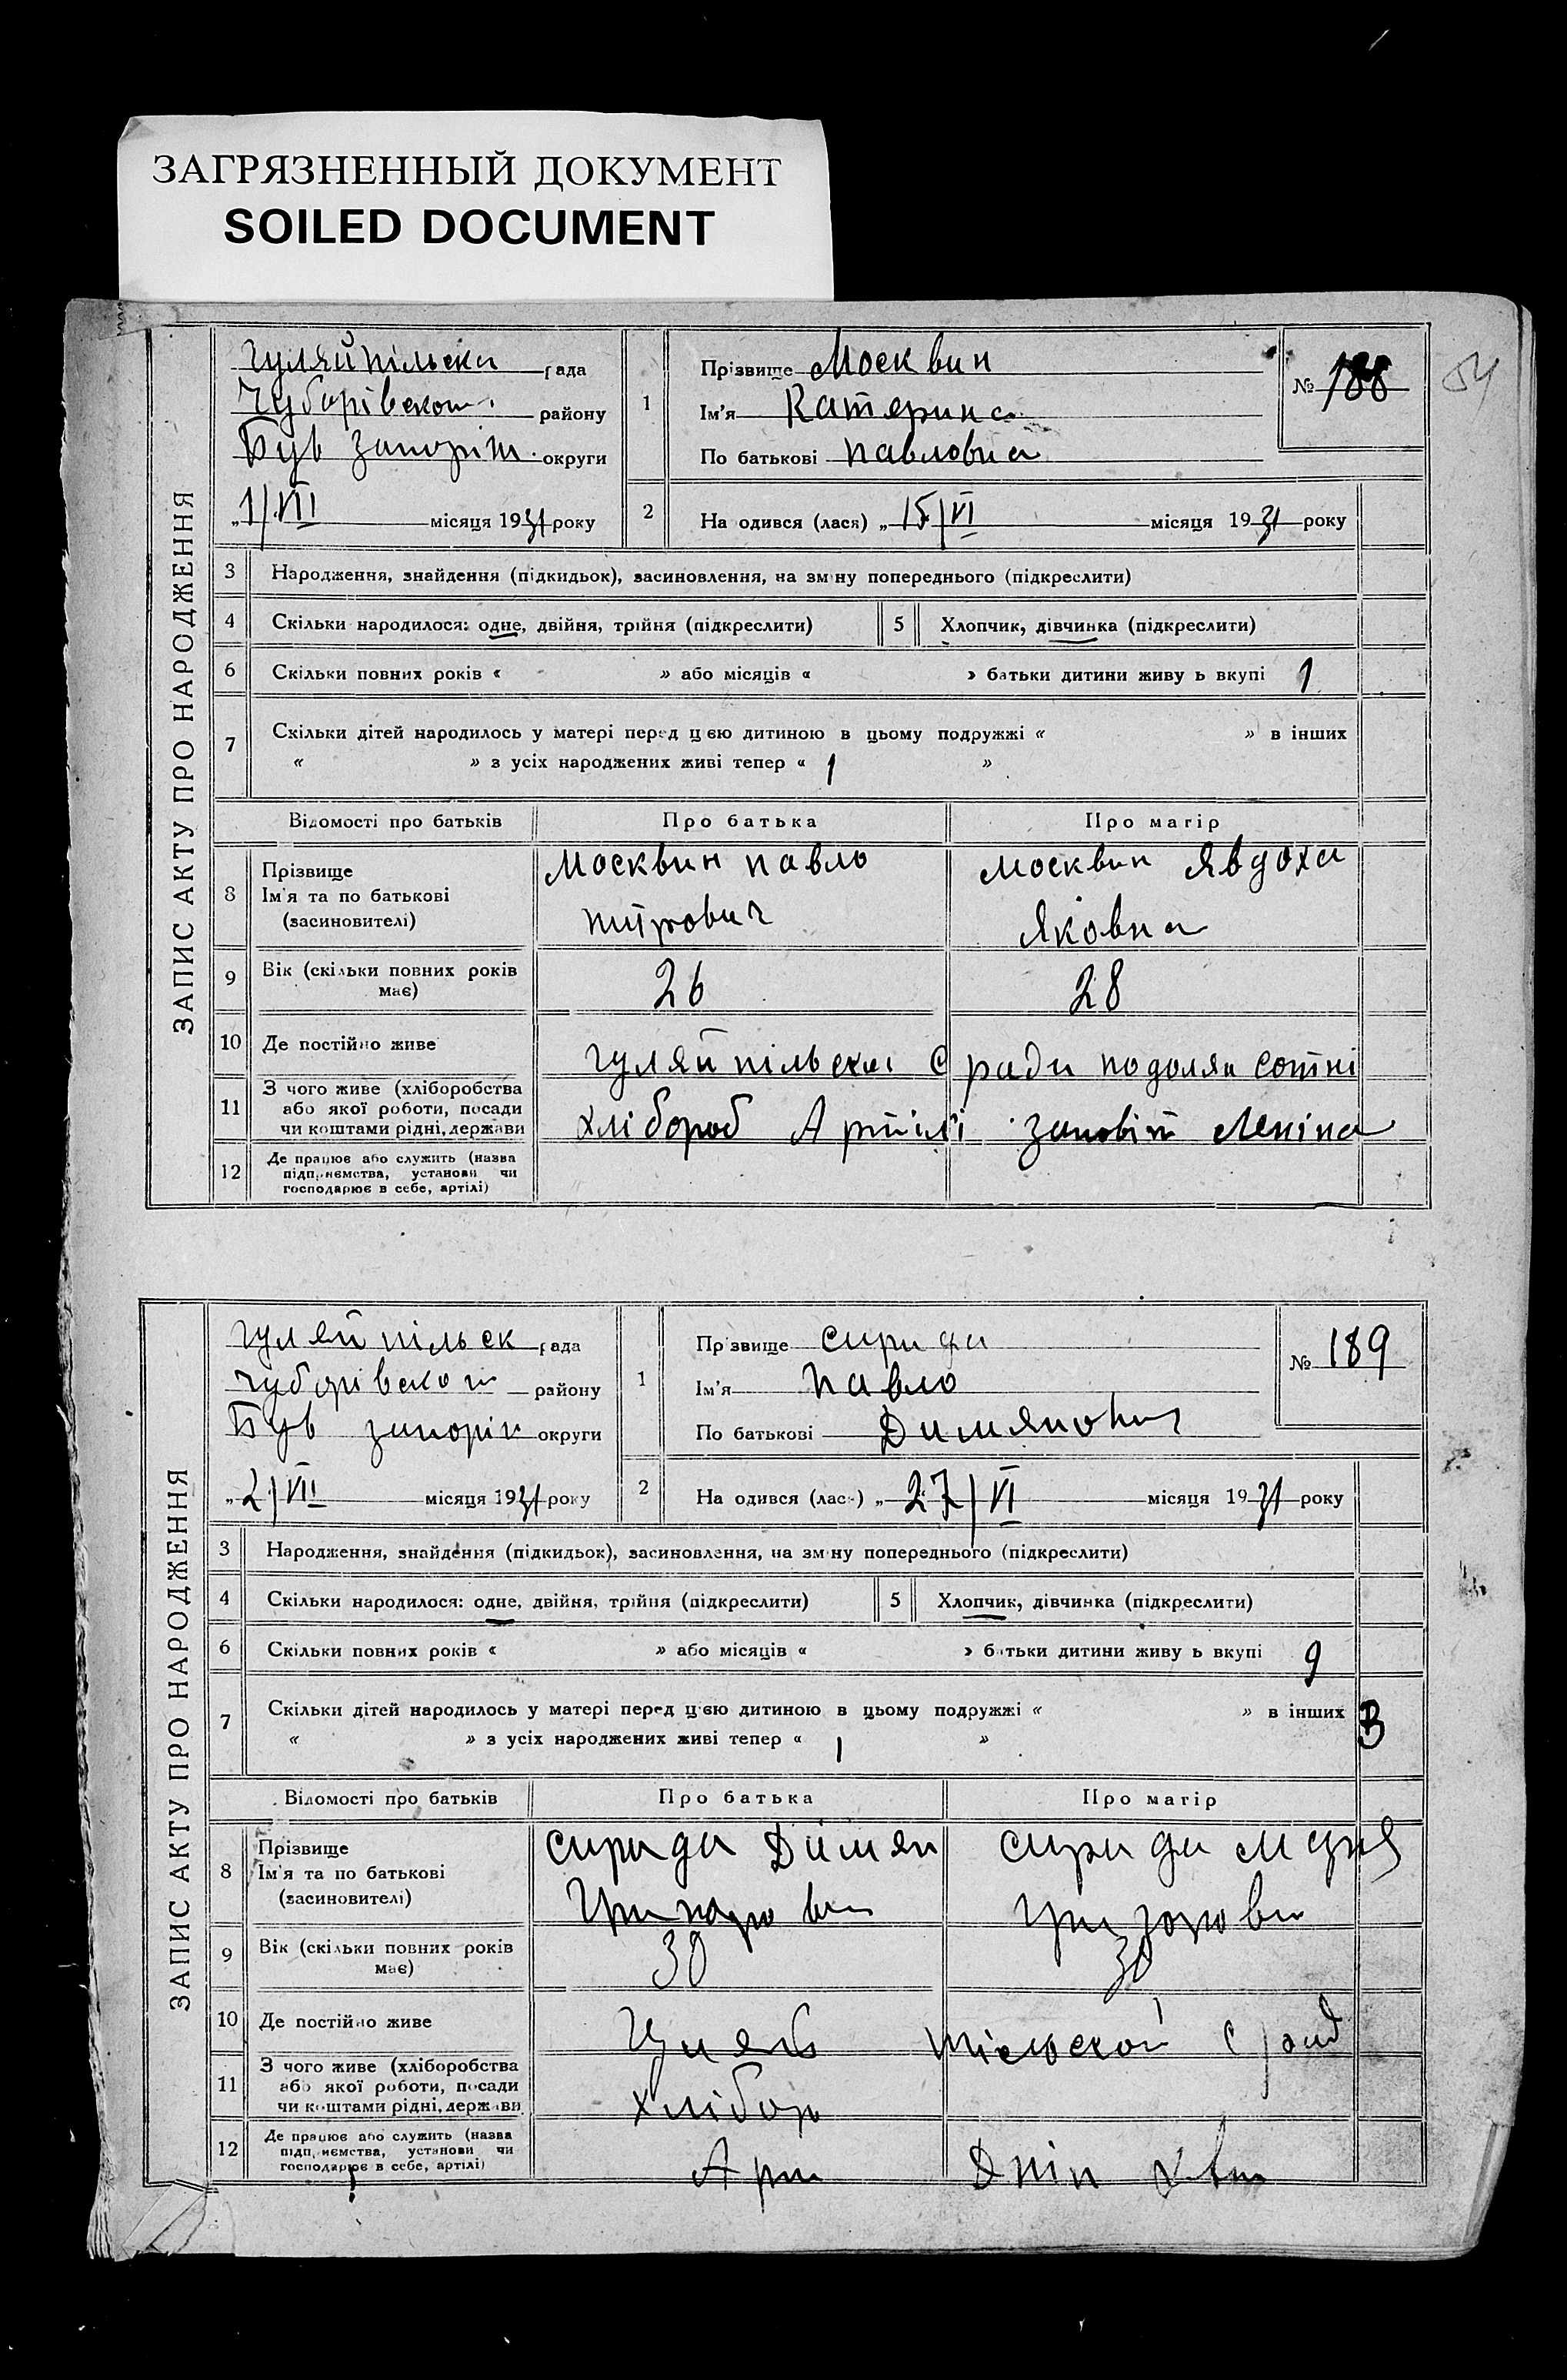 ЗАГРЯЗНЕННЫЙ ДОКУМЕНТ
SOILED DOCUMENT
54
ЗАПИС АКТУ ПРО НАРОДЖЕННЯ
гуляйпільска рада
Чубарівском району
Був запоріж. округи
„1/VII місяця 1931 року
1
Прізвище Москвин
Ім'я Катерина
По батькові павловна
№ 188
2 На одився (лася) „ 15/VI місяця 1931 року
3 Народження, знайдення (підкидьок), засиновлення, на зміну попереднього (підкреслити)
4 Скільки народилося: одне, двійня, трійня (підкреслити) 5 Хлопчик, дівчинка (підкреслити)
6 Скільки повних років « » або місяців « » батьки дитини живу ь вкупі 1
7 Скільки дітей народилось у матері перед цією дитиною в цьому подружжі « » в інших
« » з усіх народжених живі тепер « 1 »
Відомості про батьків Про батька Про матір
8 Прізвище
Ім'я та по батькові
(засиновителі)
москвин павло
питрович
москвин Явдоха
Яковна
9 Вік (скільки повних років
має) 26 28
10 Де постійно живе гуляйпільскаі с ради подоляи сотні
11 З чого живе (хліборобства
або якої роботи, посади
чи коштами рідні, держави
хлібороб Артілі заповіт Леніна
12 Де працює або служить (назва
підприємства, установи чи
господарює в себе, артілі)
ЗАПИС АКТУ ПРО НАРОДЖЕННЯ
гуляйпільск рада
чубарівском району
Був запоріж округи
„2/VII місяця 1931 року
1
Пр звище сирида
Ім'я павло
По батькові Димянович
№ 189
2 На одився (лас-) „ 27/VI місяця 1931 року
3 Народження, знайдення (підкидьок), засиновлення, на зміну попереднього (підкреслити)
4 Скільки народилося: одне, двійня, трійня (підкреслити) 5 Хлопчик, дівчинка (підкреслити)
6 Скільки повних років « » або місяців « » батьки дитини живу ь вкупі 9
7 Скільки дітей народилось у матері перед цією дитиною в цьому подружжі « » в інших 3
« » з усіх народжених живі тепер « 1 »
Відомості про батьків Про батька Про матір
8 Прізвище
Ім'я та по батькові
(засиновителі)
сирида Димян
сирида
9 Вік (скільки повних років
має) 30 30
10 Де постійно живе пільской с рад
11 З чого живе (хліборобства
або якої роботи, посади
чи коштами рідні, держави
хлібор
12 Де працює або служить (назва
підприємства, установи чи
господарює в себе, артілі)
Арт Дніп